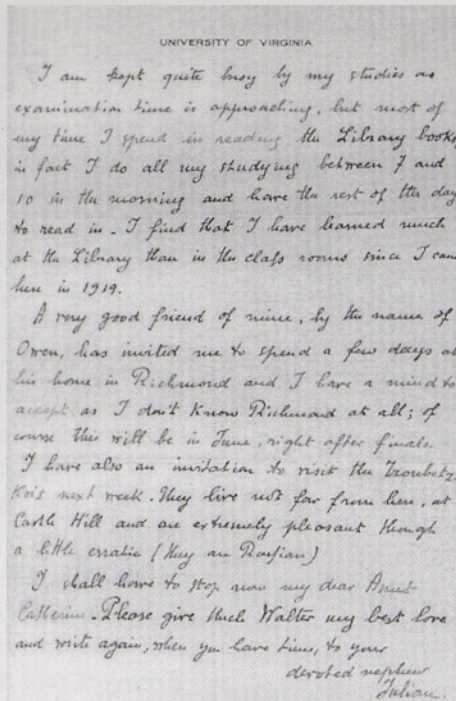 UNIVERSITY OF VIRGINIA
I am kept quite busy by my studies as
examination time is approaching, but most of
my time I spend in reading the Library books,
in fact I do all my studying between 7 and
10 in the morning and have the rest of the day
to read in. I find that I have learned much
at the Library than in the class rooms since I came
here in 1919.
A very good friend of mine, by the name of
Owen, has invited me to spend a few days at
his home in Richmond and I have a mind to
accept as I don't know Richmond at all; of
course this will be in June, right after finals.
I have also an invitation to visit the Troubetz-
Kois next week. They live not far from here, at
Castle Hill and are extremely pleasant though
a little erratic (they are Russian)
I shall have to stop now my dear Aunt
Catherine. Please give Uncle Walter my best love
and write again, when you have time, to your
devoted nephew
Julian.